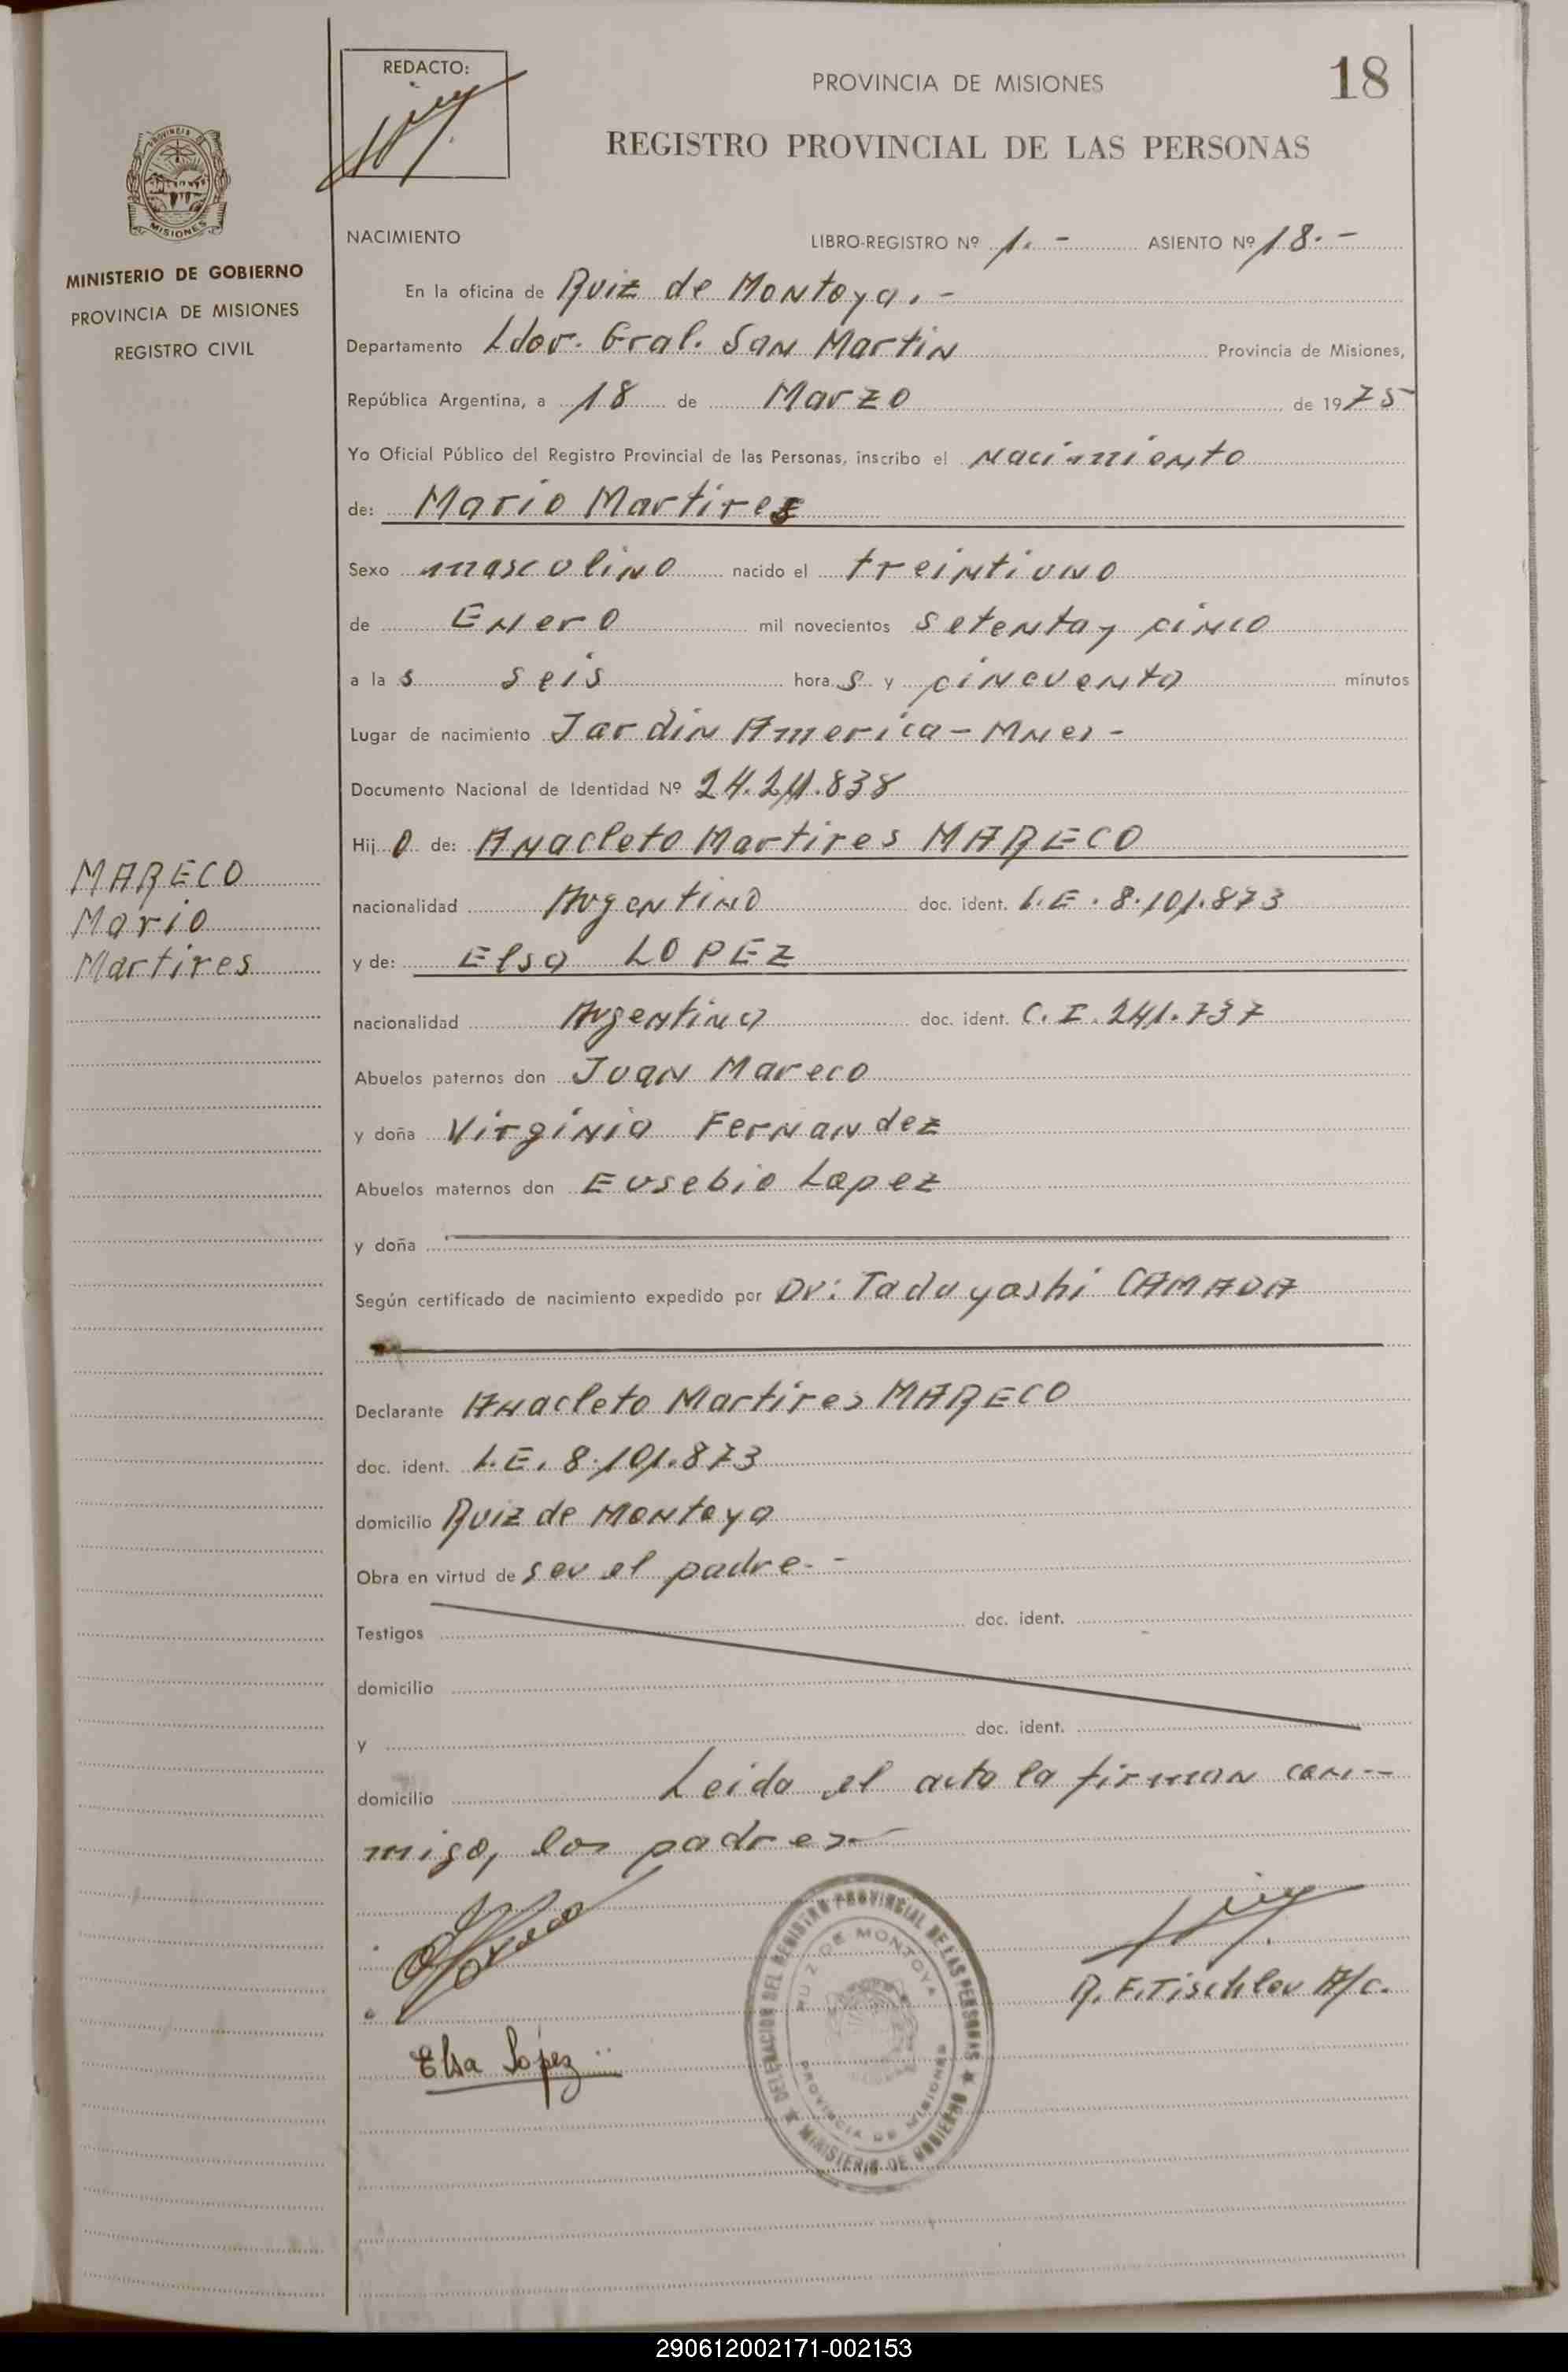 REDACTO:
PROVINCIA DE MISIONES
18
REGISTRO PROVINCIAL DE LAS PERSONAS
PROVINCIA DE
MISIONES
MINISTERIO DE GOBIERNO
PROVINCIA DE MISIONES
REGISTRO CIVIL
NACIMIENTO LIBRO-REGISTRO Nº 1. - ASIENTO Nº 18. -
En la oficina de Ruiz de Montoya. -
Departamento Ldor. Gral. San Martin Provincia de Misiones,
República Argentina, a 18 de Marzo de 1975
Yo Oficial Público del Registro Provincial de las Personas, inscribo el Nacimiento
de: Mario Martires
Sexo masculino nacido el treintiuno
de Enero mil novecientos setenta y cinco
a las seis horas y cincuenta minutos
Lugar de nacimiento Jardin America - Mnes -
Documento Nacional de Identidad Nº .838
Hijo de: Anacleto Martires MARECO
MARECO
Mario
Martires
nacionalidad Argentino doc. ident. L.E. 8.101.873
y de: Elsa LOPEZ
nacionalidad Argentina doc. ident. C.I. 241.737
Abuelos paternos don Juan Mareco
y doña Virginia Fernandez
Abuelos maternos don Eusebio Lopez
y doña
Según certificado de nacimiento expedido por Dr: Taduyashi CAMADA
Declarante Anacleto Martires MARECO
doc. ident. L.E. 8.101.873
domicilio Ruiz de Montoya
Obra en virtud de ser el padre. -
Testigos doc. ident.
domicilio
y doc. ident.
domicilio Leida el acta la firman con--
migo, los padres.-
R. F. Tischler A/c.
Elsa Lopez
DELEGACION DEL REGISTRO PROVINCIAL DE LAS PERSONAS
RUIZ DE MONTOYA
PROVINCIA DE MISIONES
MINISTERIO DE GOBIERNO
290612002171-002153